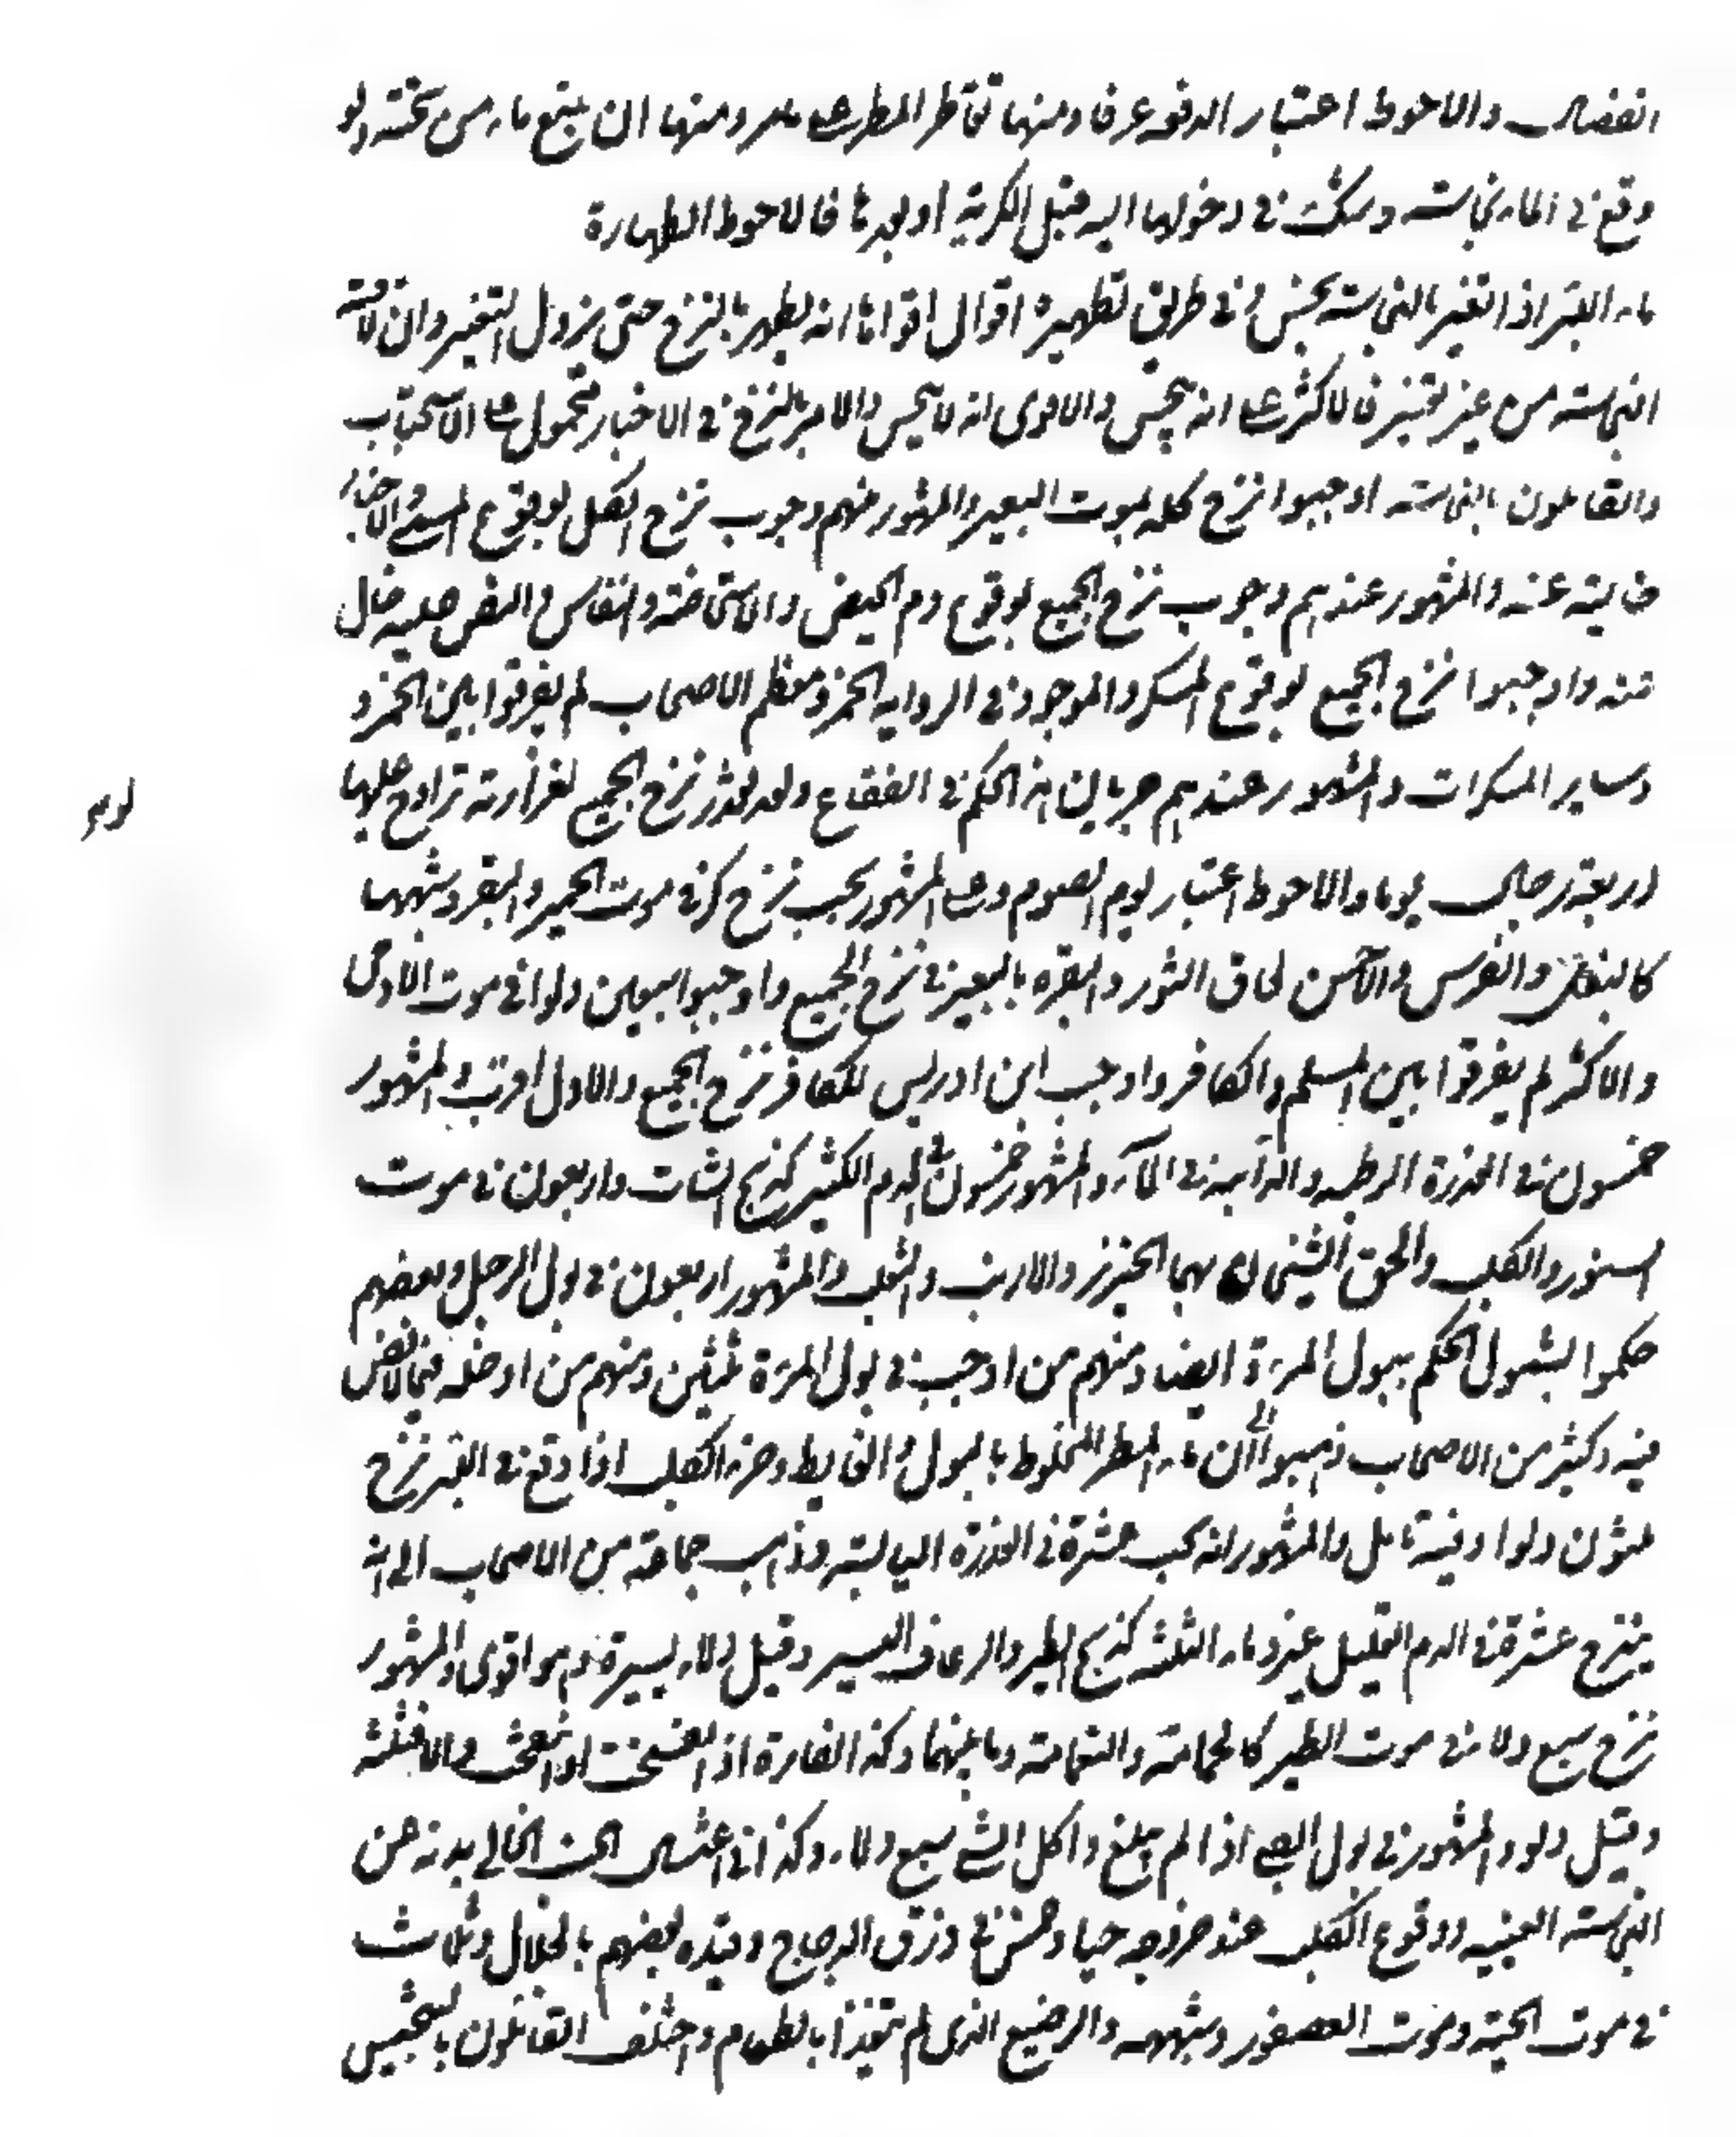 انفصال والاحوط اعتبار الدفعه عرفا ومنها تقاطر المطر على ومنها ان ينبع ماء من تحته ولو
وقع في الماء نجاسته وشك في دخولها اليه قبل الكرية او بعدها فالاحوط الطهارة
ماء البئر اذا تغير بالنجاسته ينجس وفي طريق تطهيره اقوال اقواها انه يطهر بالنزح حتى يزول التغير وان لاقته
النجاسته من غير تغيير فالاكثر على انه ينجس والاقوى انه لا ينجس والامر بالنزح في الاخبار محمول على الاستحباب
والقائلون بالنجاسته اوجبوا نزح كله لموت البعير والمشهور منهم وجوب نزح الكل لوقوع المنى والاخبار
خالية عنه والمشهور عندهم وجوب نزح الجميع لوقوع دم الحيض والاستحاضة والنفاس والنص عليه خال
عنه واوجبوا نزح الجميع لوقوع المسكر والموجود في الروايه الخمر ومعظم الاصحاب لم يفرقوا بين الخمر و
وساير المسكرات والمشهور عندهم جريان هذا الحكم في الفقاع ولو تعذر نزح الجميع لغزارته تراوح عليها
اربعة رجال يوما والاحوط اعتبار يوم الصوم وعلى المشهور يجب نزح كر في موت الحمير والبقر وشبهها
كالبغل والفرس والاحسن لحاق الثور والبقره بالبعير في نزح الجميع واوجبوا سبعين دلوا في موت الادمى
والاكثر لم يفرقوا بين المسلم والكافر واوجب ابن ادريس للكافر نزح الجميع والاول اقرب والمشهور
خمسون في العذرة الرطبه والذائبه في الماء والمشهور خمسون في الدم الكثير كذبح الشات واربعون في موت
السنور والكلب والحق الشيخان بهما الخنزير والارنب والثعلب والمشهور اربعون في بول الرجل وبعضهم
حكموا بشمول الحكم ببول المرءة ايضا ومنهم من اوجب في بول المرءة ثلثين ومنهم من ادخله فيما لا نص
فيه وكثير من الاصحاب ذهبوا الى ان ماء المطر المخلوط بالبول والغايط وخرء الكلب اذا وقع في البئر نزح
ثلثون دلوا وفيه تامل والمشهور انه يجب عشرة في العذرة اليابسته وذهب جماعة من الاصحاب الى انه
ينزح عشرة في الدم القليل غير دماء الثلثه كذبح الطير والرعاف اليسير وقيل دلاء يسيرة وهو اقوى والمشهور
نزح سبع دلاء في موت الطير كالحمامة والنعامة وما بينهما وكذا الفارة اذا تفسخت او انتفخت والا فثلثة
وقيل دلو والمشهور في بول الصبى اذا لم يبلغ واكل الشئ سبع دلاء وكذا في اغتسال الجنب الخالى بدنه عن
النجاسته العينيه ووقوع الكلب عند خروجه حيا وخمس في ذرق الدجاج وقيده بعضهم بالجلال وثلاث
في موت الحية وموت العصفور وشبهه والرضيع الذى لم يتغذا بالطعام واختلف القائلون بالتنجيس